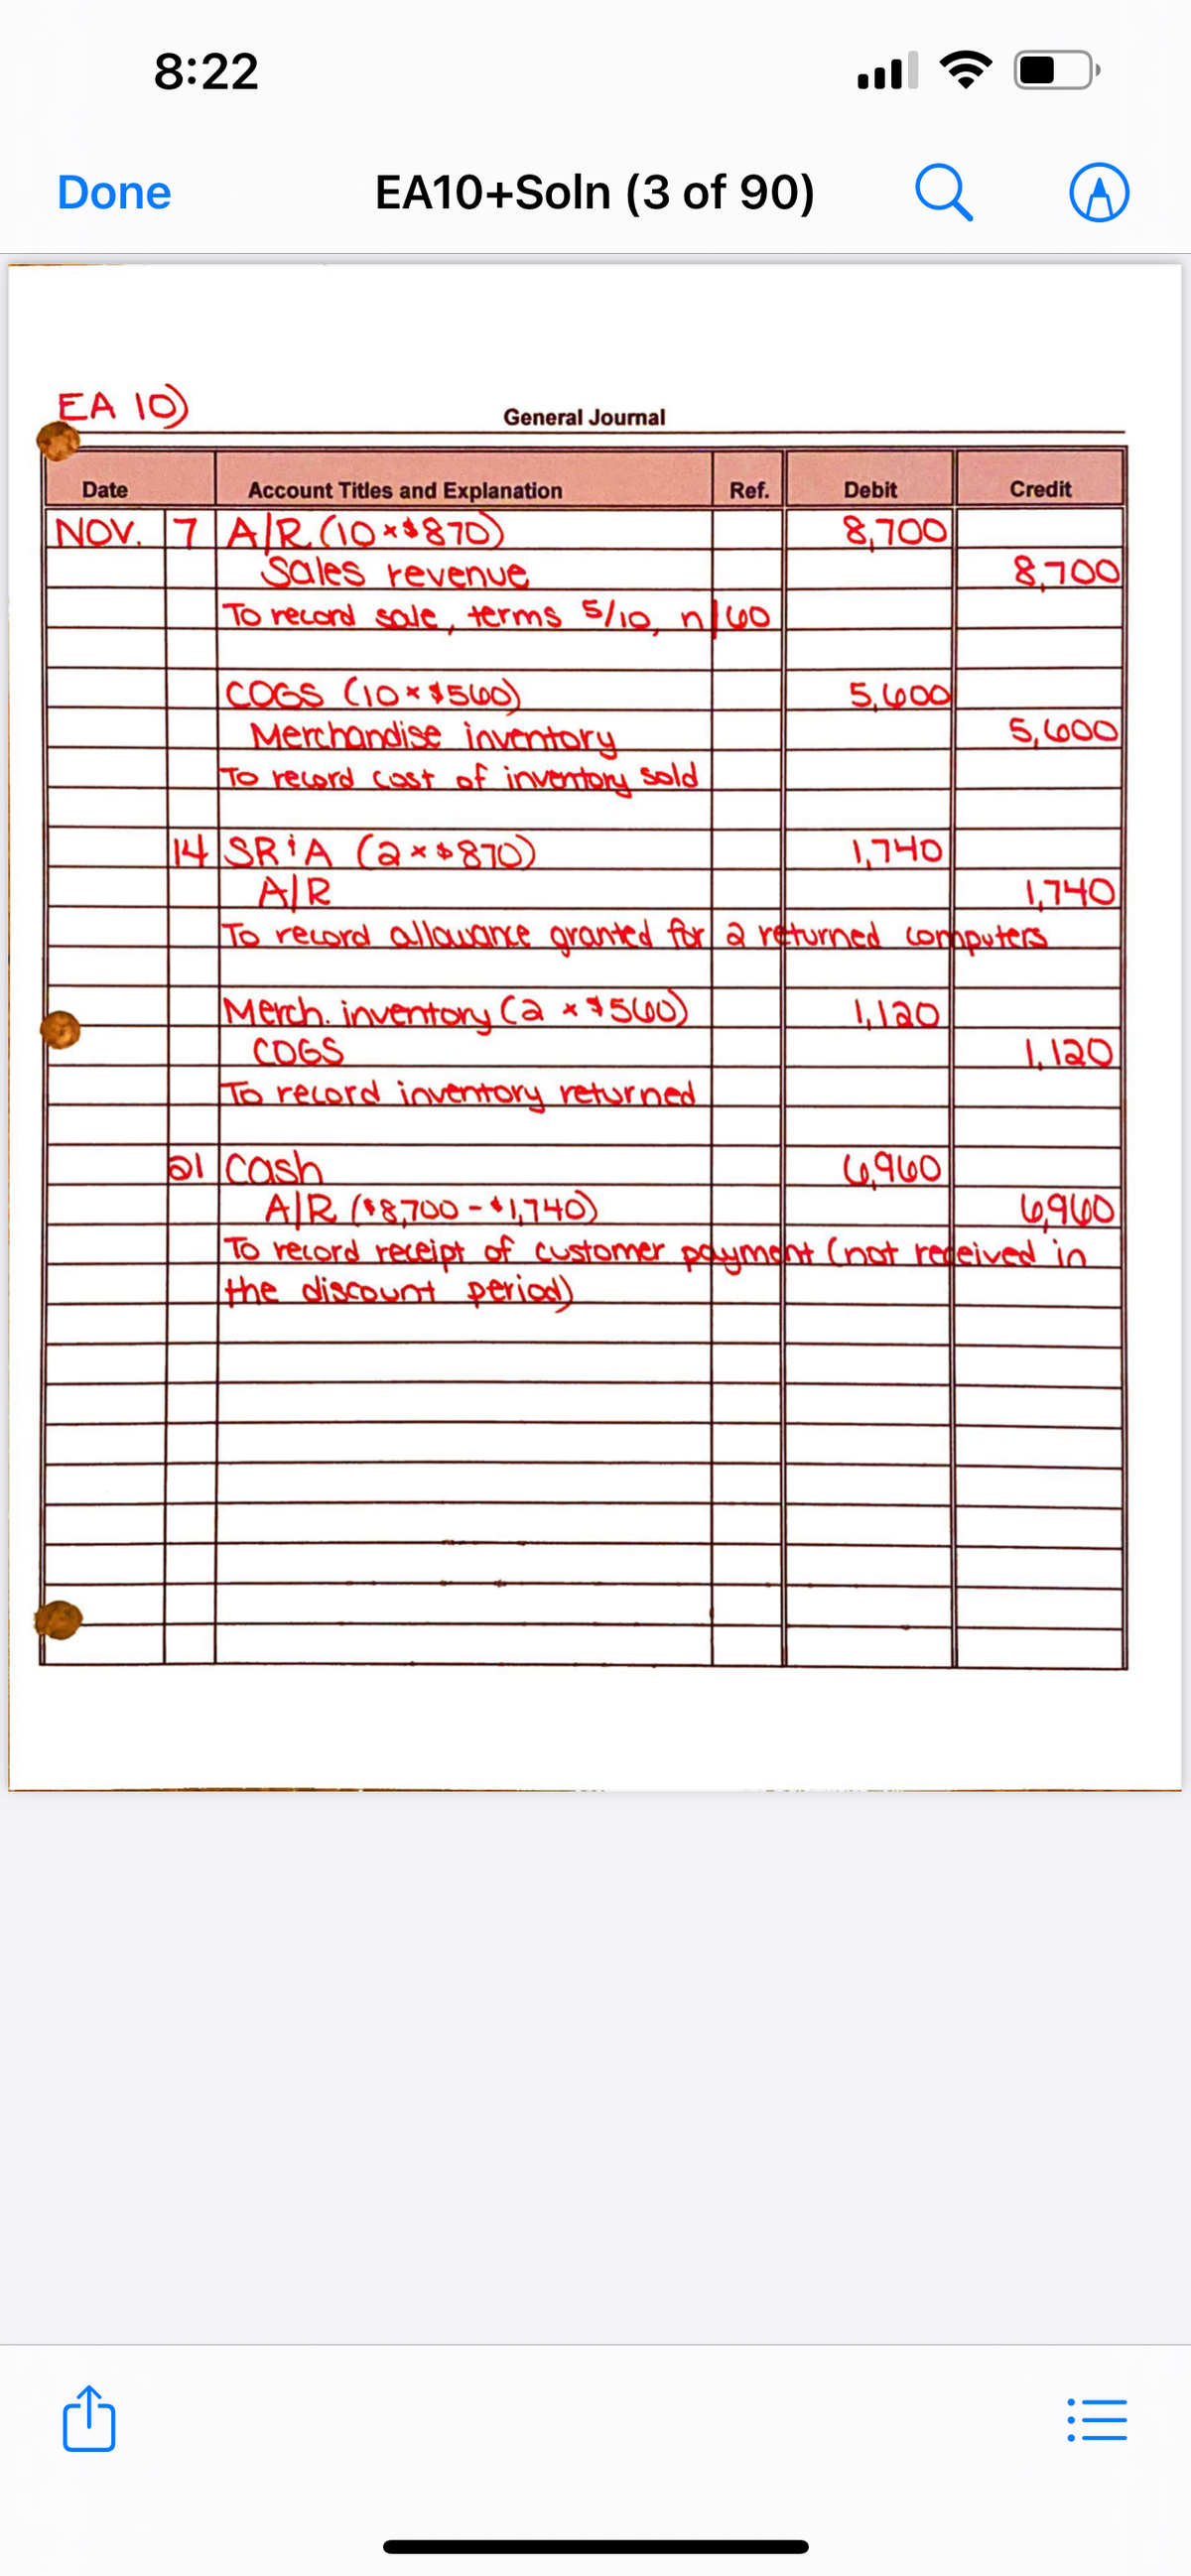 8:22
Done
EA10+Soln (3 of 90)
EA 10)
General Journal
Date Account Titles and Explanation Ref. Debit Credit
NOV. 7 A/R (10 × $870) 8,700
Sales revenue 8,700
To record sale, terms 5/10, n/60
COGS (10 × $560) 5,600
Merchandise inventory 5,600
To record cost of inventory sold
14 SR&A (2 × $870) 1,740
A/R 1,740
To record allowance granted for 2 returned computers
Merch. inventory (2 × $560) 1,120
COGS 1,120
To record inventory returned
21 Cash 6,960
A/R ($8,700 - $1,740) 6,960
To record receipt of customer payment (not received in
the discount period)